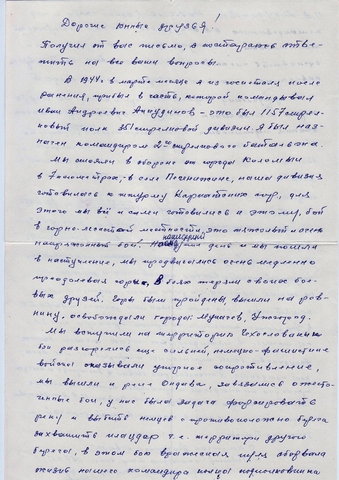 Дорогие юные друзья!
Получил от вас письмо, я постараюсь отве-
жить на все ваши вопросы.
В 1944г в марте месяце я из госпиталя после
ранения, прибыл в часть, которой командывал
Иван Андреевич Анцудинов – это был 1157 стрел-
ковый полк 351 стрелковой дивизии. Я был наз-
начен командиром 2го стрелкового батальона.
Мы стояли в обороне от города Коломыи
в 7 километрах, в селе Печенежине, наша дивизия
готовилась к штурму Карпатских гор, для
этого мы и готовились к этому, бой
в горно-лесистой местности, это тяжолый и очень
напряжонный бой. Наступил решающий день и мы пошли
в наступление, мы продвигались очень медленно
преодолевая горы, в боях теряли своих бое-
вых друзей. Горы были пройдены вышли на рав-
нину, освобождали города: Мукачев, Ужгород.
Мы вступили на территорию Чехословакии
бои разгорелись ещо сильней, немецко-фашистские
войска оказывали упорное сопротивление,
мы вышли к реке Ондава, завязались ожесто-
ченные бои, у нас была задача форсировать
реку и выбить немцев с противоположно берега
захватить плацдар т.е. территори другого
берега, в этом бою вражеская пуля оборвала
жизнь нашего командира полка подполковника